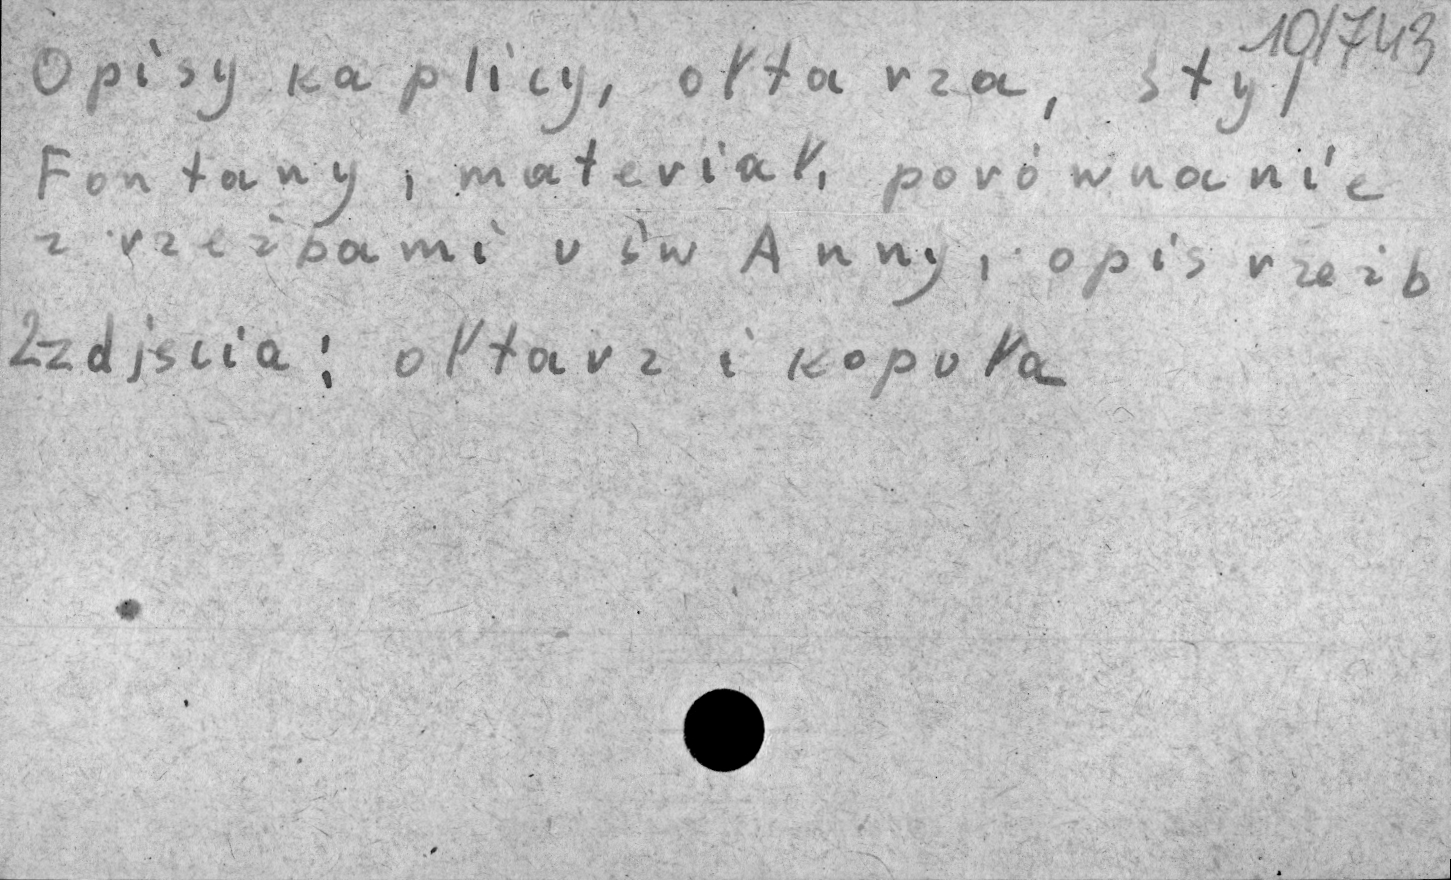 10/743
Opisy kaplicy, ołtarza, styl
Fontany, materiał, porównanie
z rzeźbami u św Anny, opis rzeźb
2 zdjścia: ołtarz i kopuła